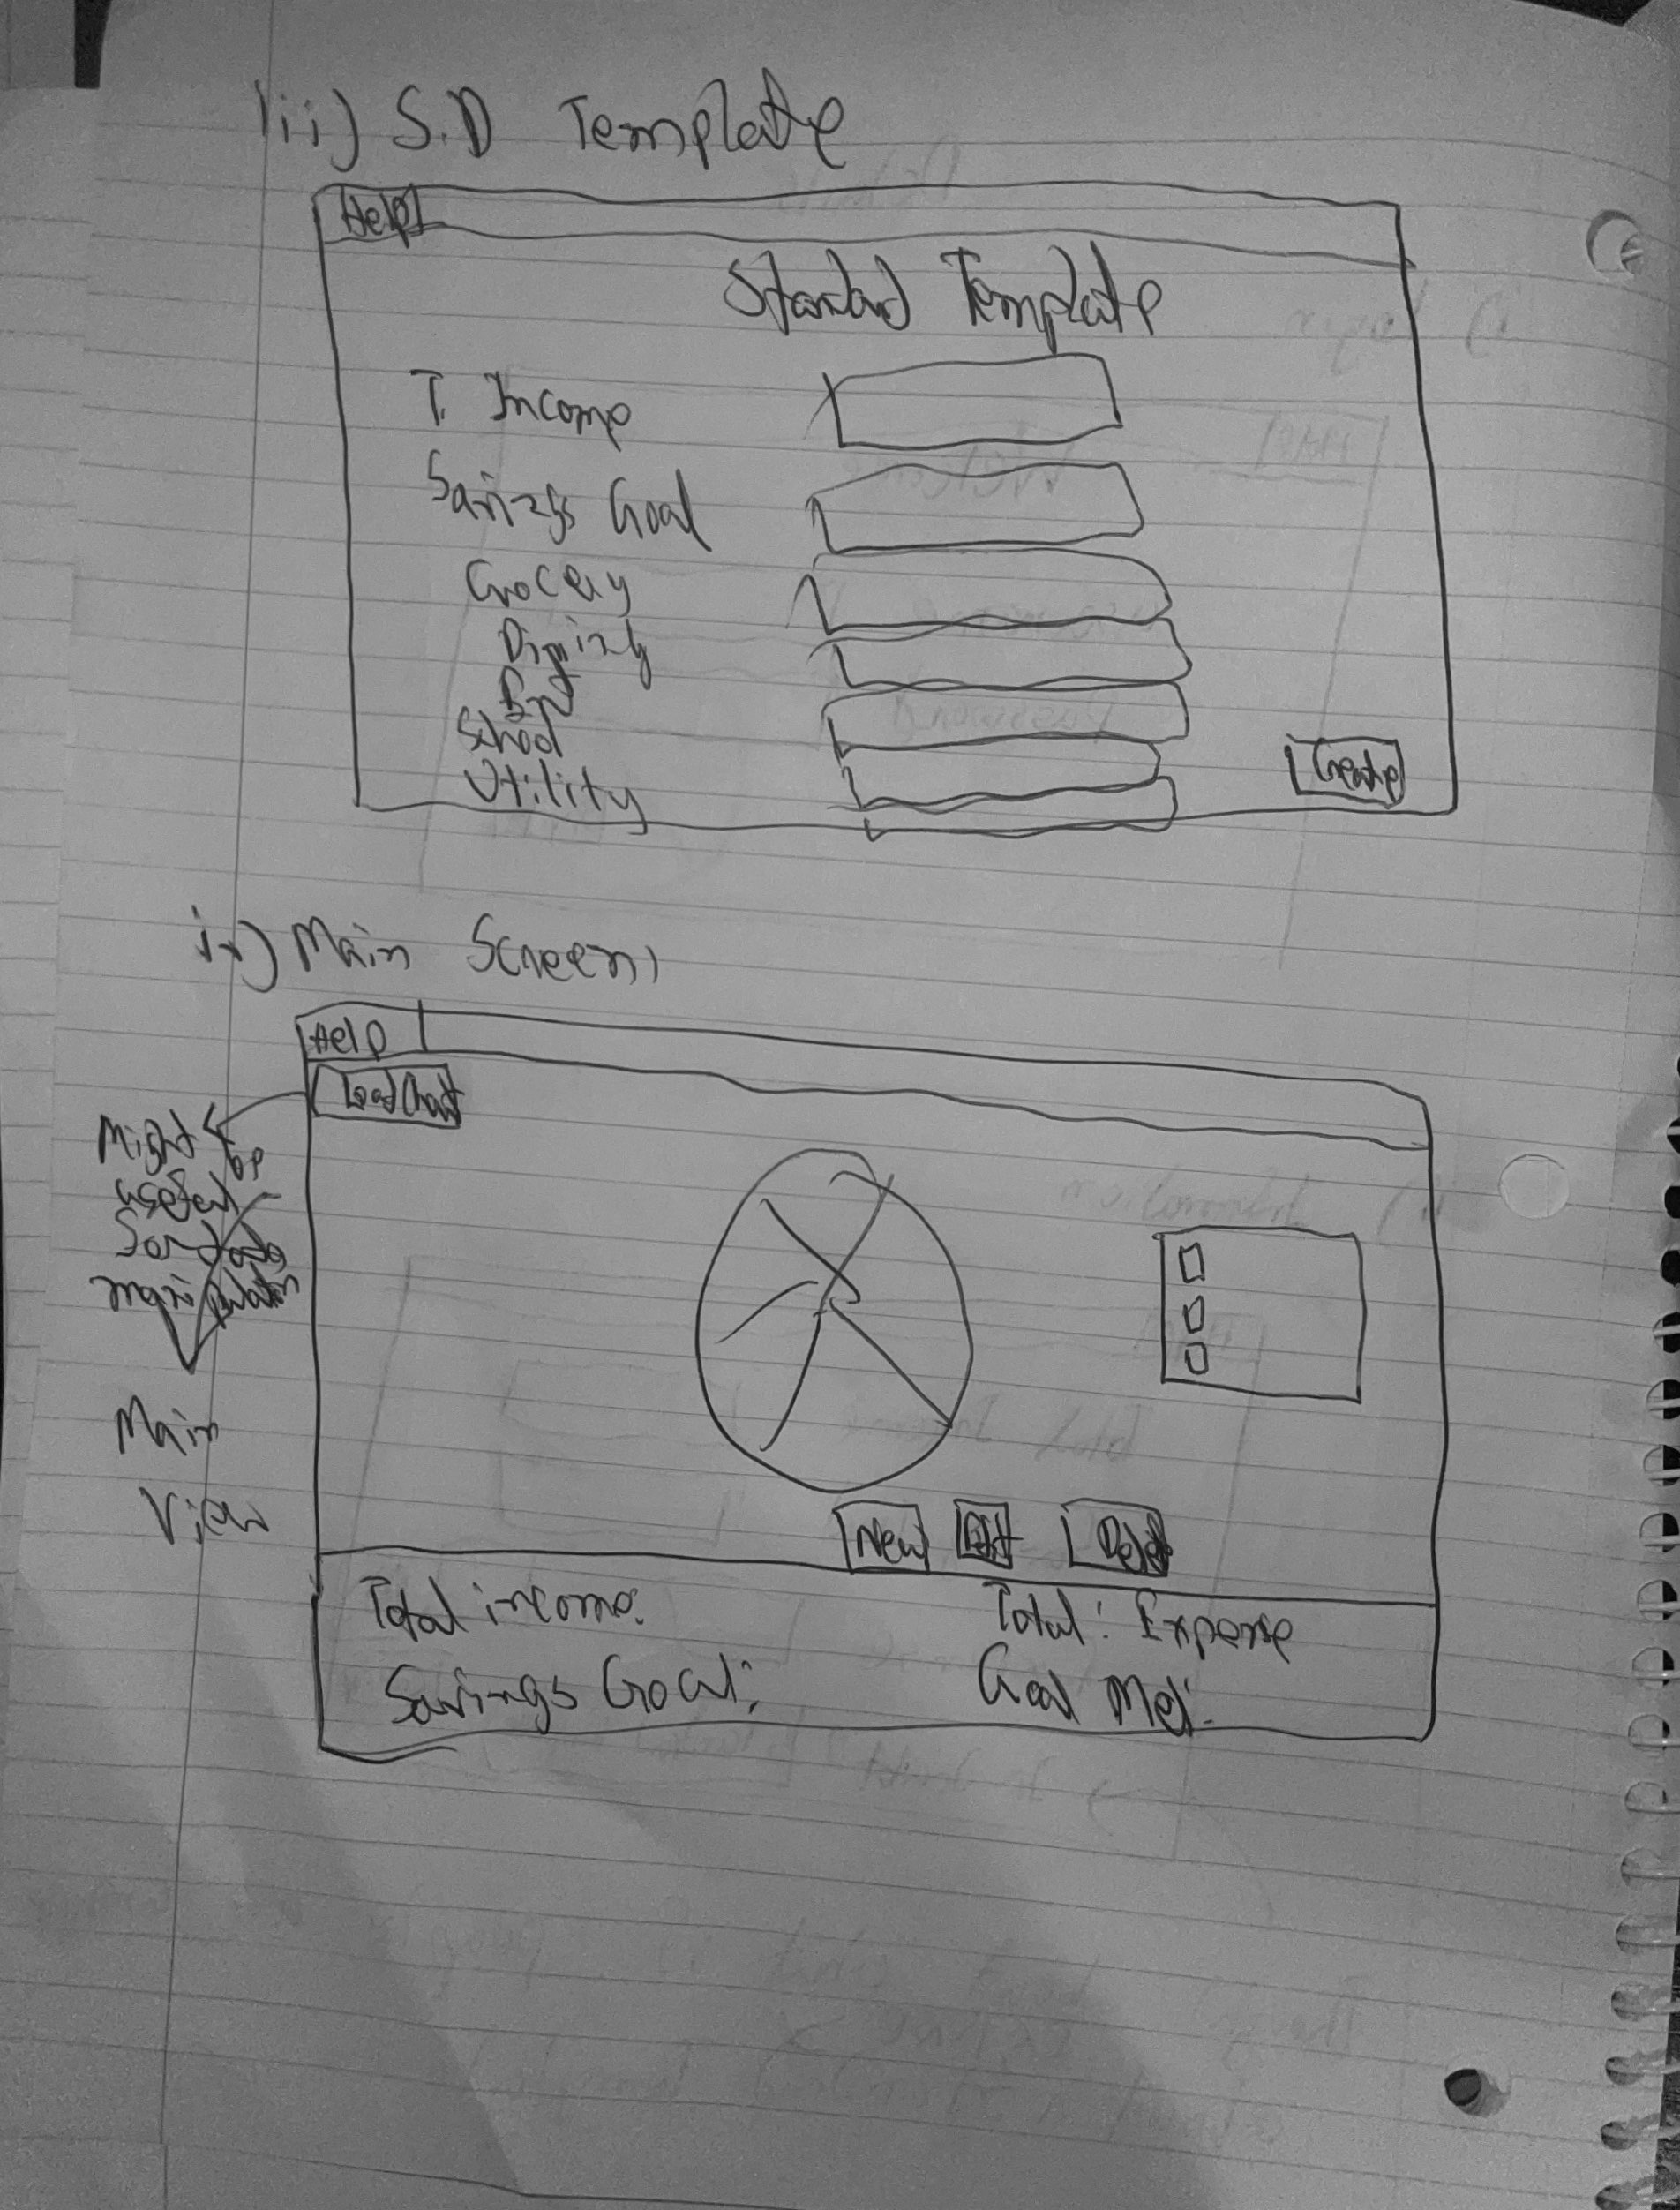 iii) S.D Template
Help
Standard Template
T. Income
Savings Goal
Grocery
School
Utility
Create
iv) Main Screen
Help
Load Chart
Might be
useful
for data
manipulation
Main
View
New Edit Delet
Total income: Total: Expense
Savings Goal: Goal Met: